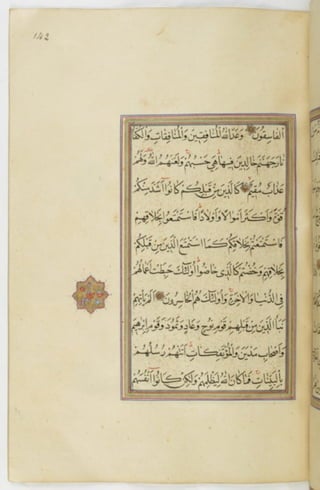 142
الفاسقون وعد الله المنافقين والمنافقات والكفار
نار جهنم خالدين فيها هي حسبهم ولعنهم الله ولهم
عذاب مقيم كالذين من قبلكم كانوا أشد منكم
قوة وأكثر أموالا وأولادا فاستمتعوا بخلاقهم
فاستمتعتم بخلاقكم كما استمتع الذين من قبلكم
بخلاقهم وخضتم كالذي خاضوا أولئك حبطت أعمالهم
في الدنيا والآخرة وأولئك هم الخاسرون ألم يأتهم
نبأ الذين من قبلهم قوم نوح وعاد وثمود وقوم إبراهيم
وأصحاب مدين والمؤتفكات أتتهم رسلهم
بالبينات فما كان الله ليظلمهم ولكن كانوا أنفسهم